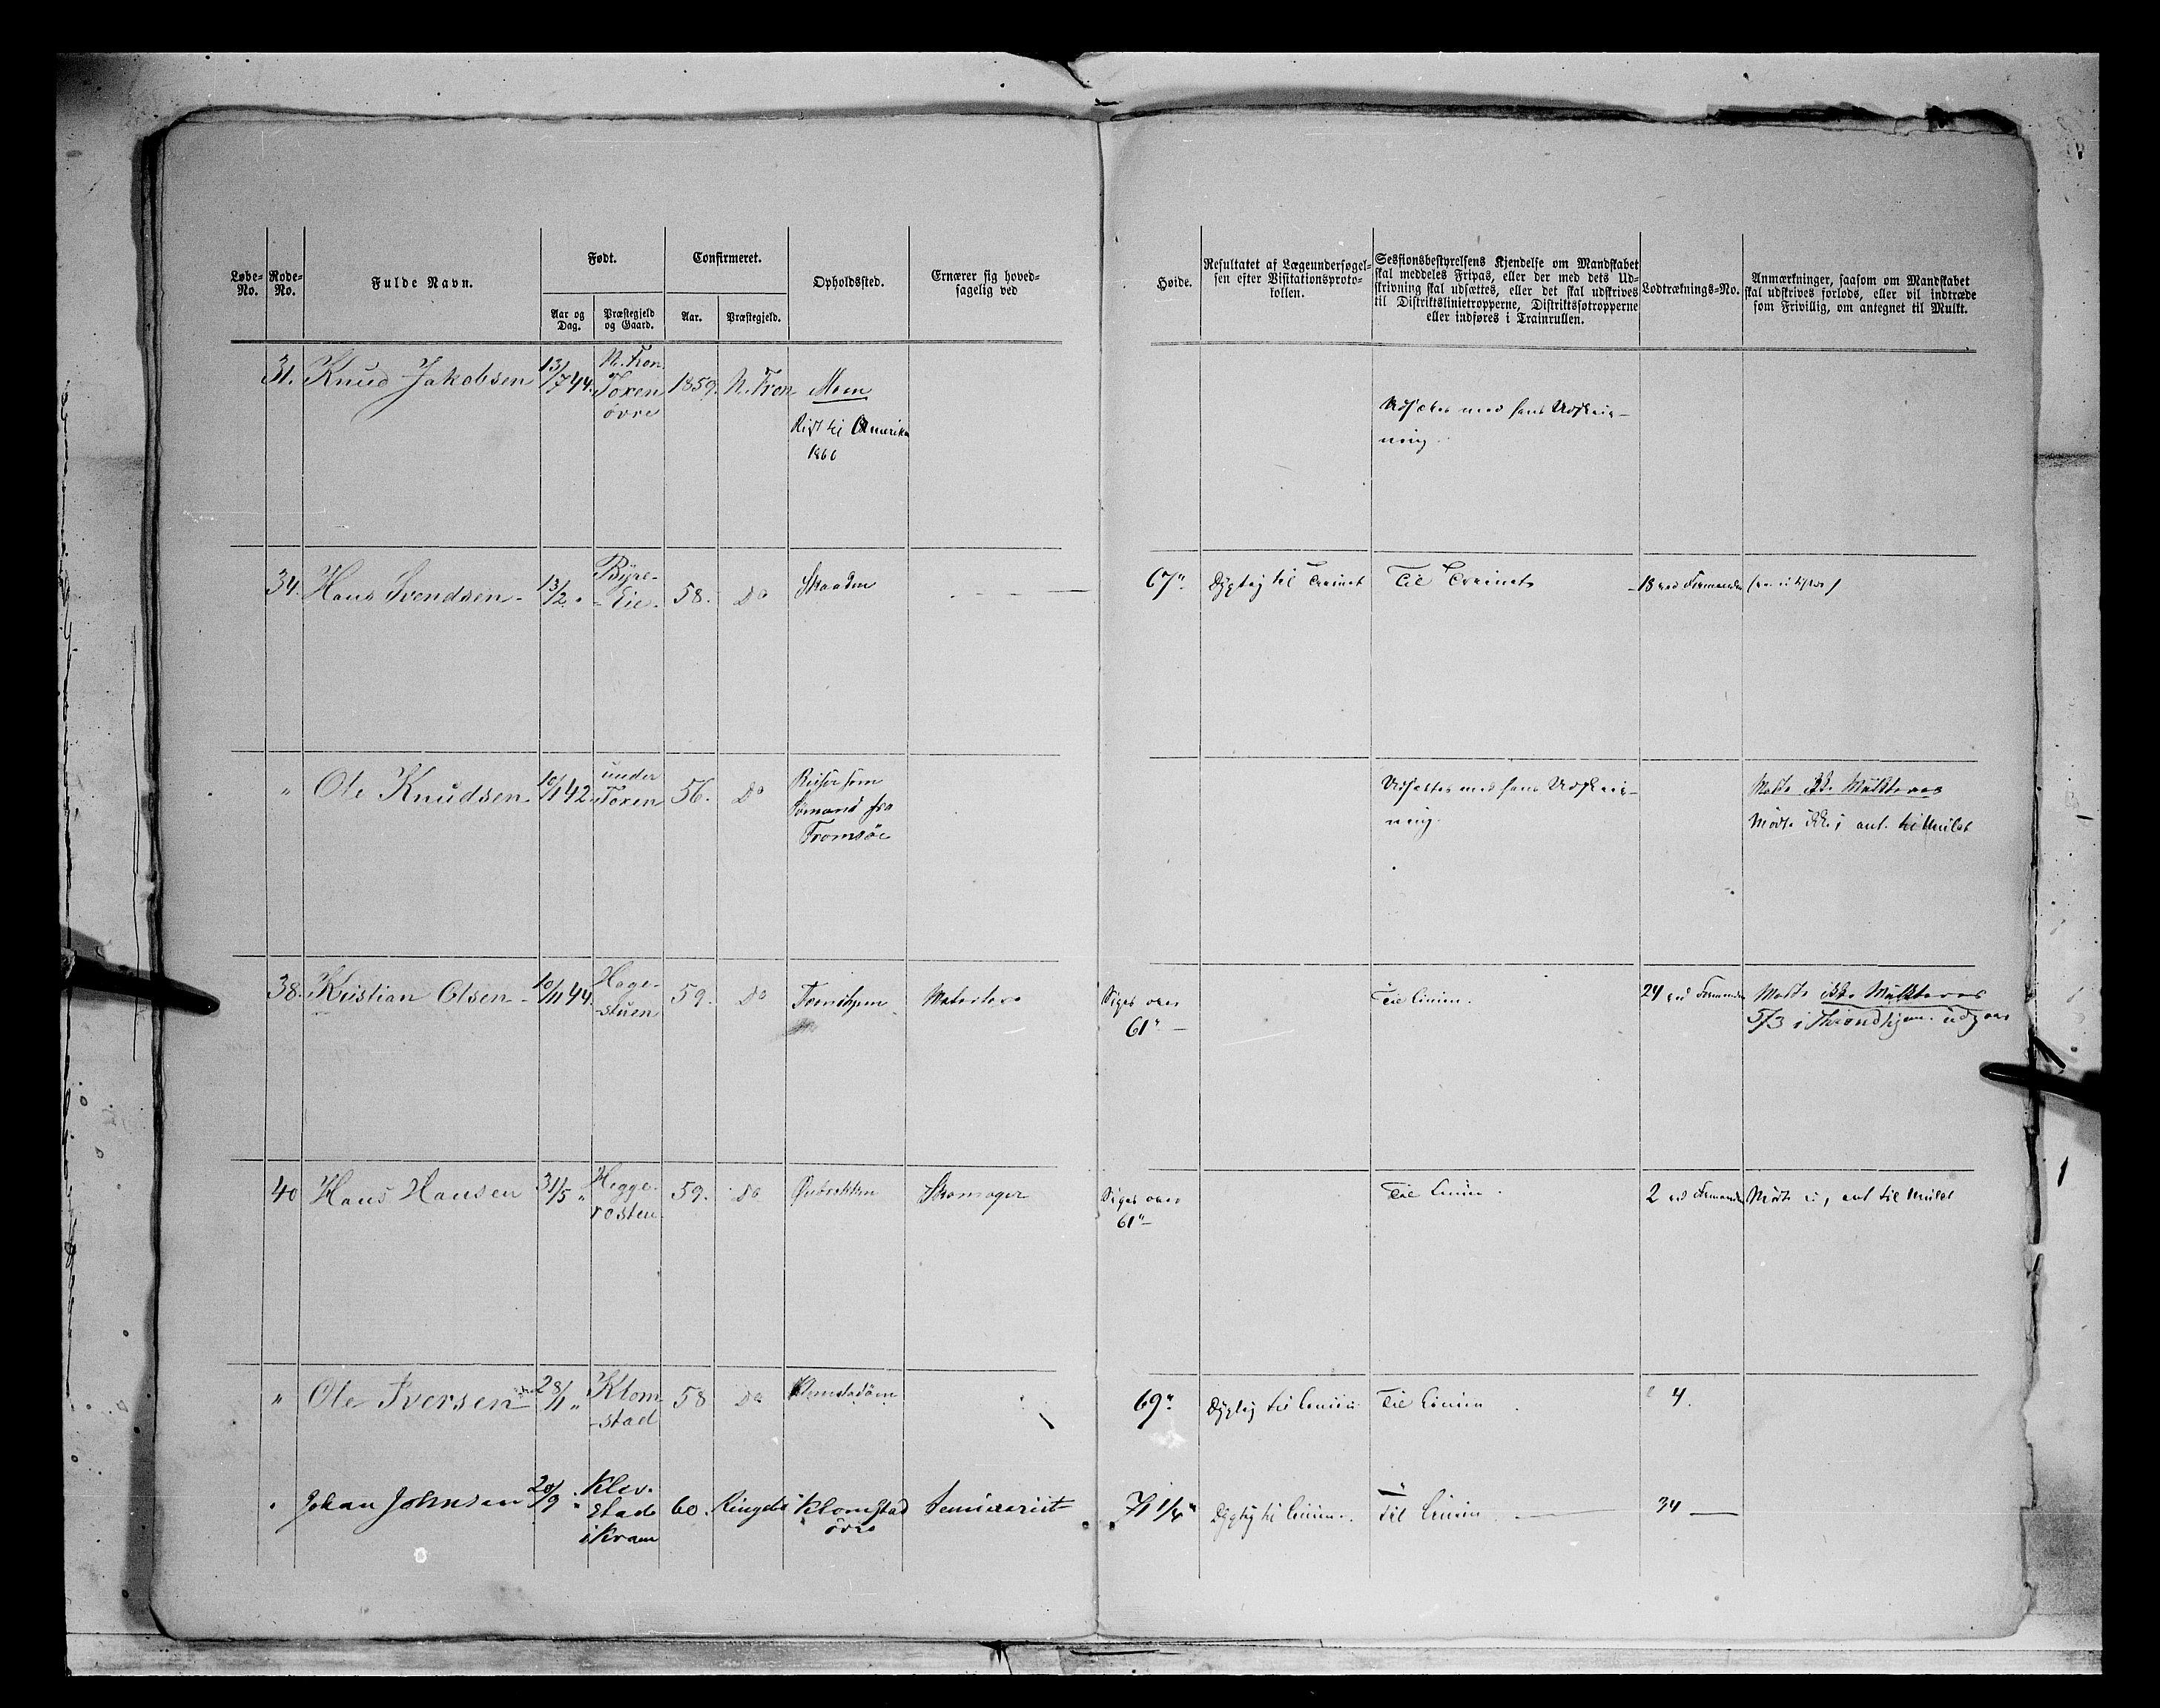 Løbe-No.
Rode-No.
Fulde Navn.
Født.
Aar og Dag.
Præstegjeld og Gaard.
Confirmeret.
Aar.
Præstegjeld.
Opholdssted.
Ernærer sig hoved-
sagelig ved
Høide.
Resultatet af Lægeundersøgel-
sen efter Visitationsproto-
kollen.
Sessionsbestyrelsens Kjendelse om Mandskabet
skal meddeles Fripas, eller der med dets Ud-
skrivning skal udsættes, eller det skal udskrives
til Distriktslinietropperne, Distriktsfotropperne
eller indføres i Trainrullen.
Lodtræknings-No.
Anmærkninger, saasom om Mandskabet
skal udskrives forlods, eller vil indtræde
som Frivillig, om antegnet til Mulkt.
31. Knud Jakobsen 13/7 44. N. Fron Toxen øvre 1859. N. Fron Moen
Reist til Amerika
1866
Udsættes med hans Udskriv-
ning.
34. Hans Svendsen 13/2 " Byre-Eie 58. Do Skaaden
67" Dygtig til Trainet Til Trainet 18 ved Formanden
" Ole Knudsen 10/1 42 under Toxen 56. Do Reiser som
Sømand fra
Tromsöe
Udsættes med hans Udskriv-
ning.
Mødte ikke Mulkteres
Mødte ikke, ant. til Mulkt
38. Kristian Olsen 10/11 44. Hage-stuen 59. Do Trondhjem
Siges over
61"
Til Linien. 24 ved Formanden Mødte ikke Mulkteres
5/3 i Throndhjem udgaar
40 Hans Hansen 31/5 " Hegge-rosten 59. Do Skomager
Siges over
61"
Til Linien. 2 ved Formanden Mødte ei, ant til Mulkt
" Ole Iversen 28/1 " Klom-stad 58 Do
69" Dygtig til Linien Til Linien 4.
" Johan Johnsen 20/9 " Klev-stad i Kram 60. Ringebo Klomstad
övre
Seminarist
71 1/4" Dygtig til Linien. Til Linien 34